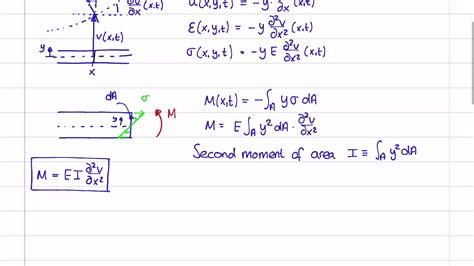 ∂v/∂x (x,t)
u(x,y,t) = -y ∂v/∂x (x,t)
ε(x,y,t) = -y ∂²v/∂x² (x,t)
σ(x,y,t) = -y E ∂²v/∂x² (x,t)
v(x,t)
y
x
dA
σ
y
M
M(x,t) = -∫_A yσ dA
M = E ∫_A y² dA · ∂²v/∂x²
Second moment of area I ≡ ∫_A y² dA
M = E I ∂²v/∂x²